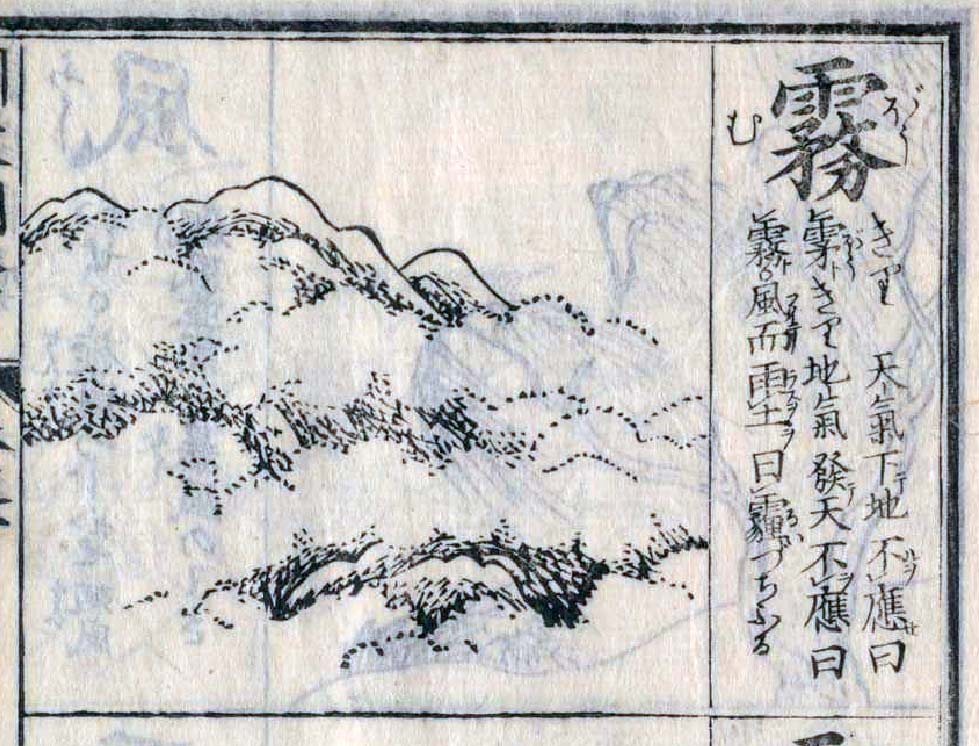 霧
む
きり 天氣下テ地不應セ曰
雺トきり地氣發テ天不應曰
霧ト○風而雨土曰霾つちふる